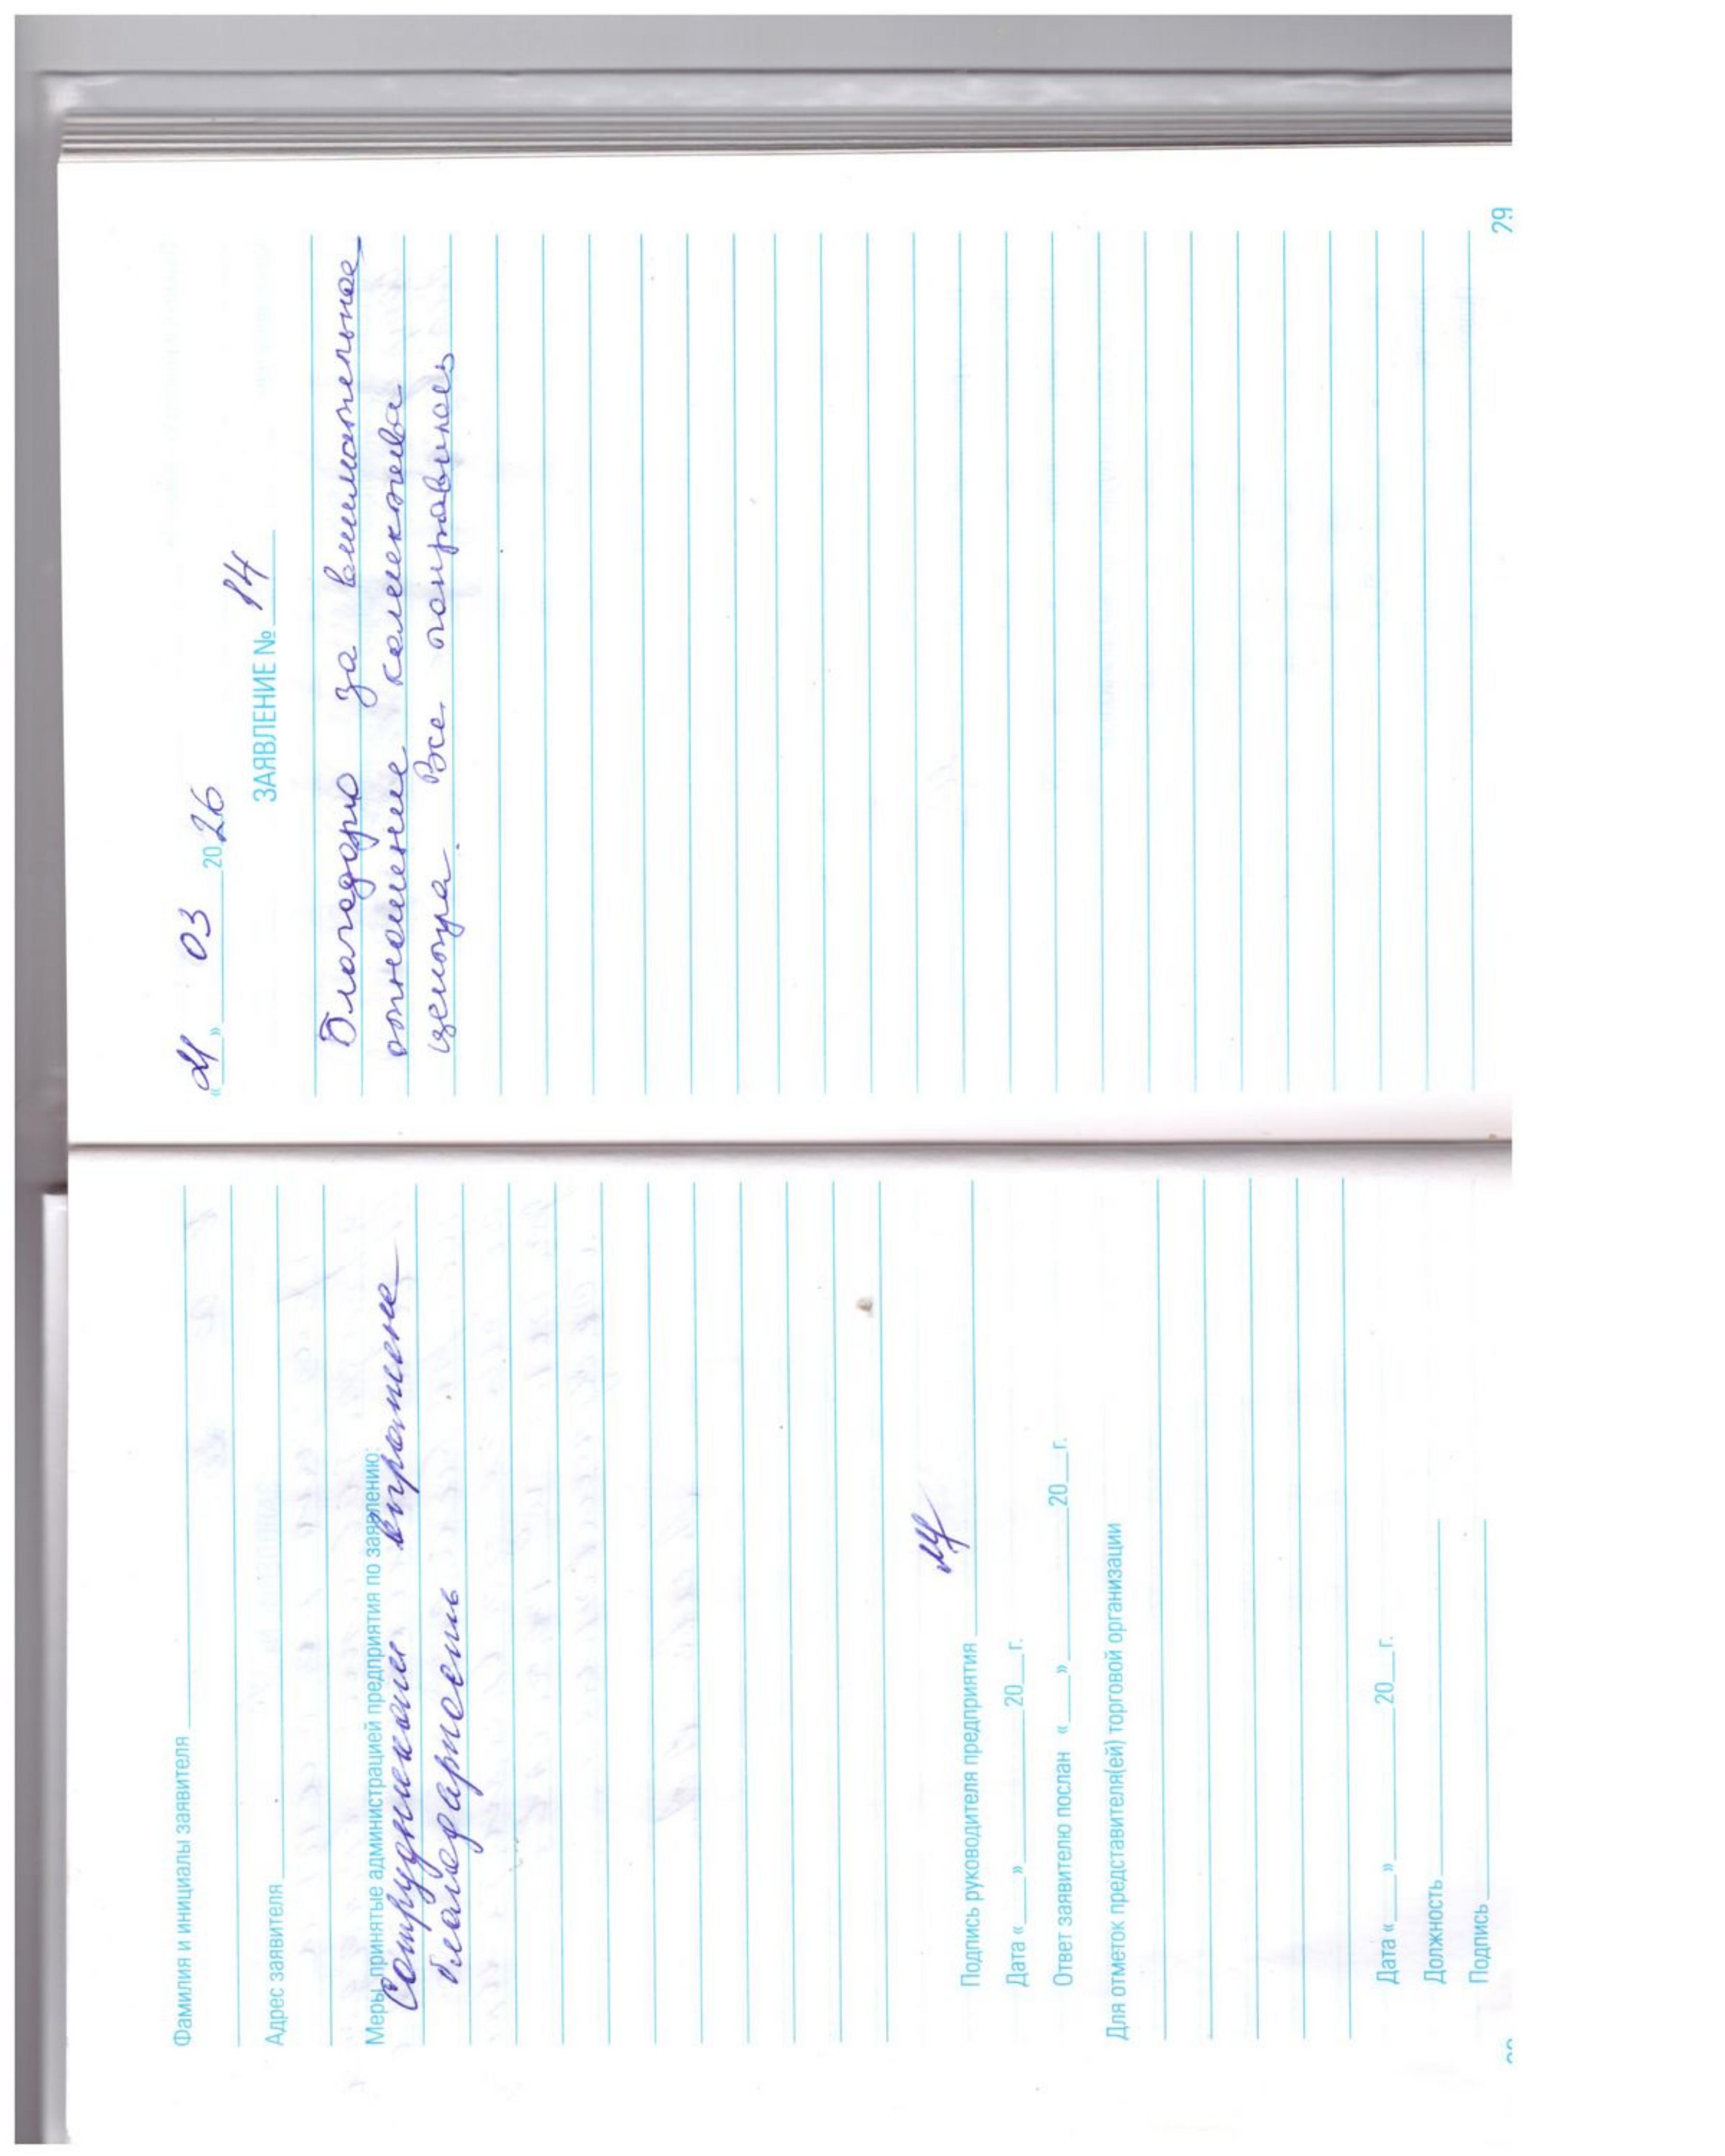 Фамилия и инициалы заявителя
Адрес заявителя
Меры, принятые администрацией предприятия по заявлению:
Сотрудникам
благодарность
Подпись руководителя предприятия
Дата «___» ______ 20__г.
Ответ заявителю послан «___» ______ 20__г.
Для отметок представителя(ей) торговой организации
Дата «___» ______ 20__г.
Должность
Подпись
« » 03 2026
ЗАЯВЛЕНИЕ № 14
Благодарю за внимательное
отношение коллектива
центра. Все понравилось
29